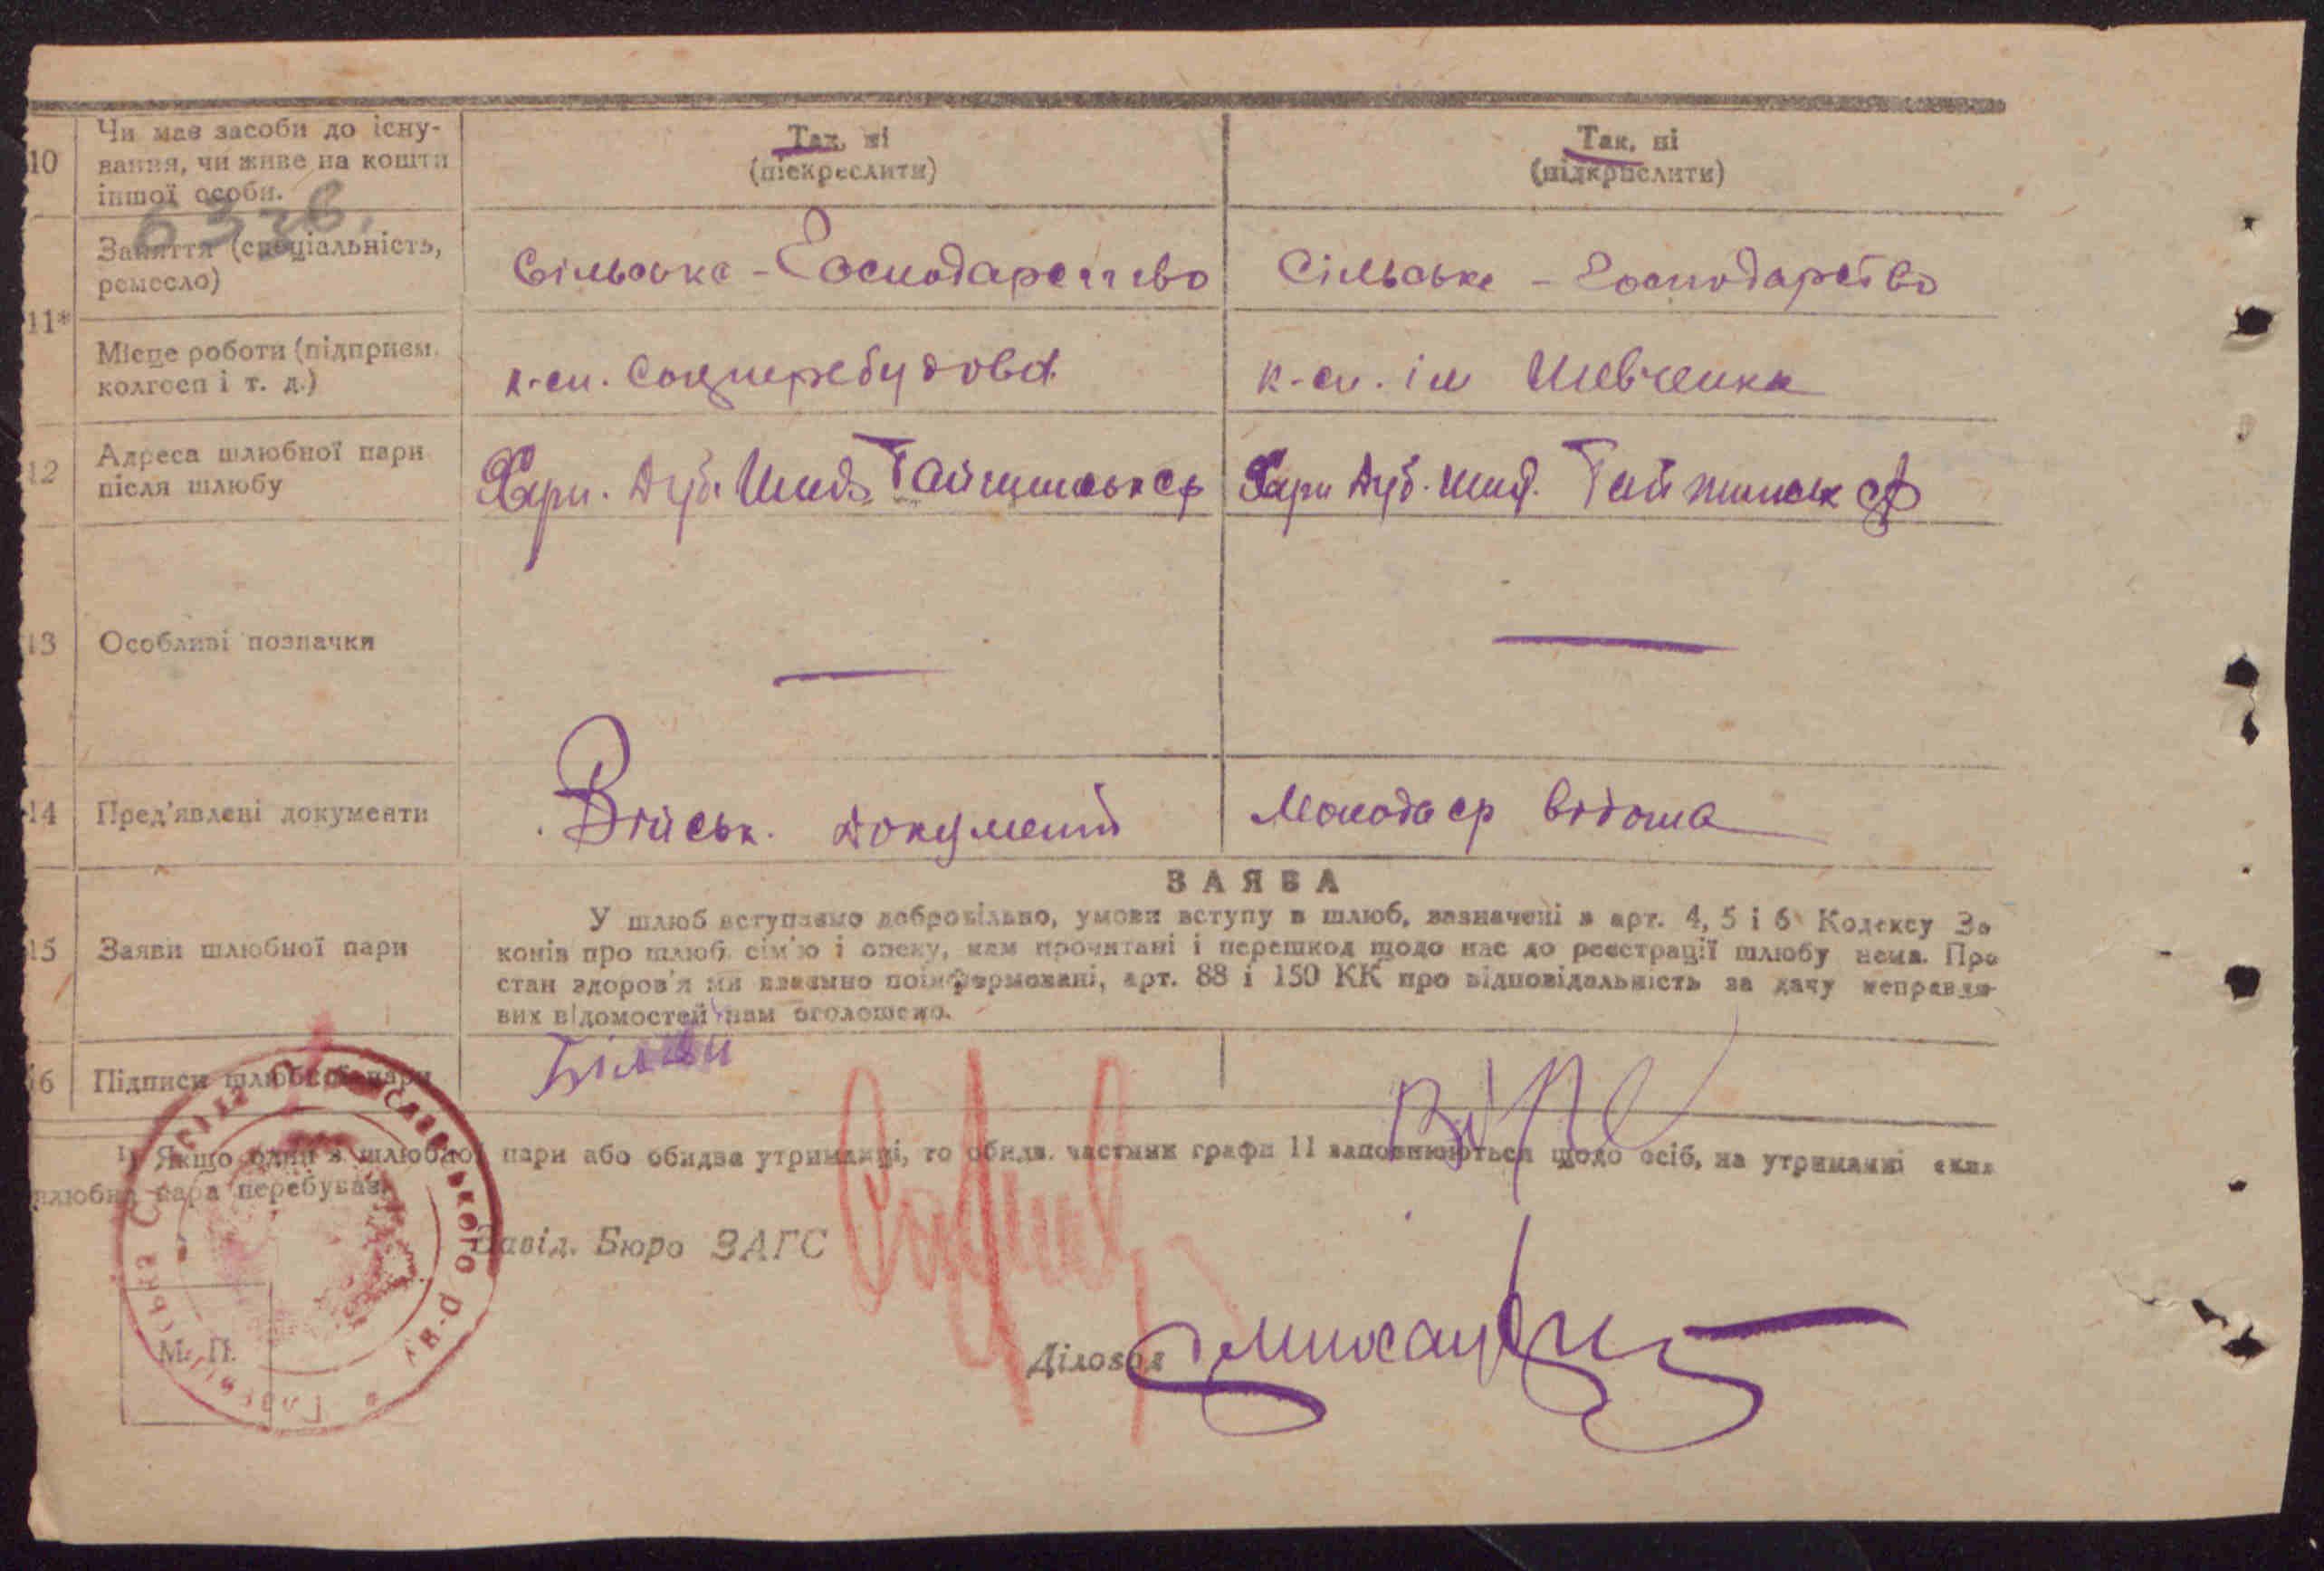 10
Чи має засоби до існу-
вання, чи живе на кошти
іншої особи.
Так, ні
(піскреслити)
Так, ні
(підкрислити)
11*
Заняття (спеціальність,
ремесло)
Сільське - Господарство
Сільське - Господарство
Місце роботи (підприєм.
колгосп і т. д.)
к-сп. Соцперебудова
к-сп. ім Шевченка
12
Адреса шлюбної пари
після шлюбу
Харк. Дуб.
Харк Дуб.
13
Особливі позначки
—
—
14
Пред'явлені документи
Військ. документ
відома
15
Заяви шлюбної пари
ЗАЯВА
У шлюб вступаємо добровільно, умови вступу в шлюб, зазначені в арт. 4, 5 і 6 Кодексу За
конів про шлюб, сім'ю і опеку, нам прочитані і перешкод щодо нас до реєстрації шлюбу нема. Про
стан здоров'я ми взаємно поінформовані, арт. 88 і 150 КК про відповідальність за дачу неправди-
вих відомостей нам оголошено.
16
Підписи шлюбної пари
1) Якщо один з шлюбної пари або обидва утриманці, то обидв. частини графи 11 заповнюються щодо осіб, на утриманні яких
шлюбна пара перебуває.
Завід. Бюро ЗАГС
Діловод
М. П.